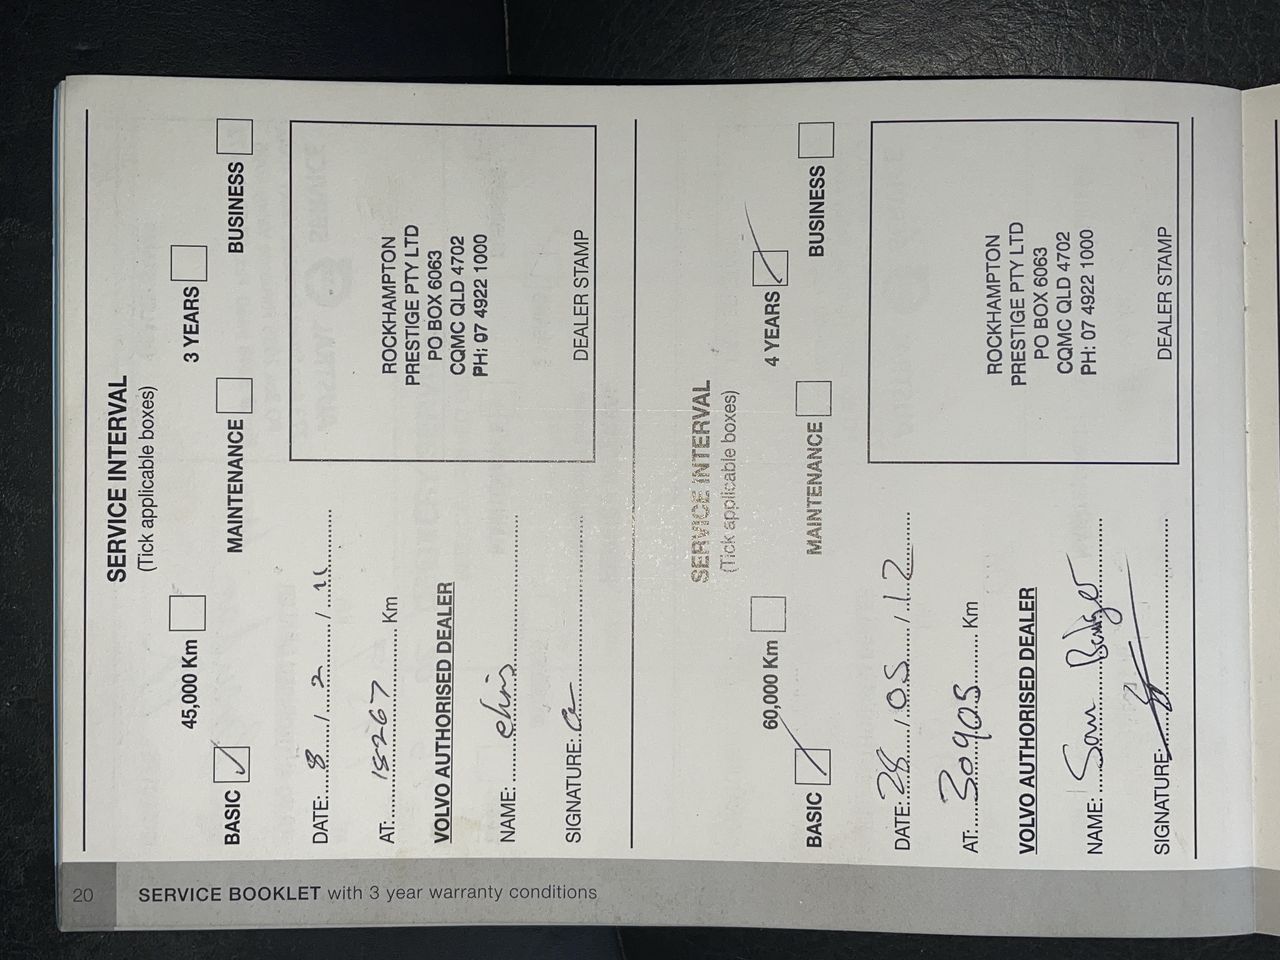 SERVICE INTERVAL
(Tick applicable boxes)
45,000 Km 3 YEARS
BASIC MAINTENANCE BUSINESS
DATE: 8 / 2 / 11
AT: 15267 Km
VOLVO AUTHORISED DEALER
NAME: chris
SIGNATURE:
ROCKHAMPTON
PRESTIGE PTY LTD
PO BOX 6063
CQMC QLD 4702
PH: 07 4922 1000
DEALER STAMP
SERVICE INTERVAL
(Tick applicable boxes)
60,000 Km 4 YEARS
BASIC MAINTENANCE BUSINESS
DATE: 28 / 05 / 12
AT: 30905 Km
VOLVO AUTHORISED DEALER
NAME: Sam Badger
SIGNATURE:
ROCKHAMPTON
PRESTIGE PTY LTD
PO BOX 6063
CQMC QLD 4702
PH: 07 4922 1000
DEALER STAMP
20 SERVICE BOOKLET with 3 year warranty conditions